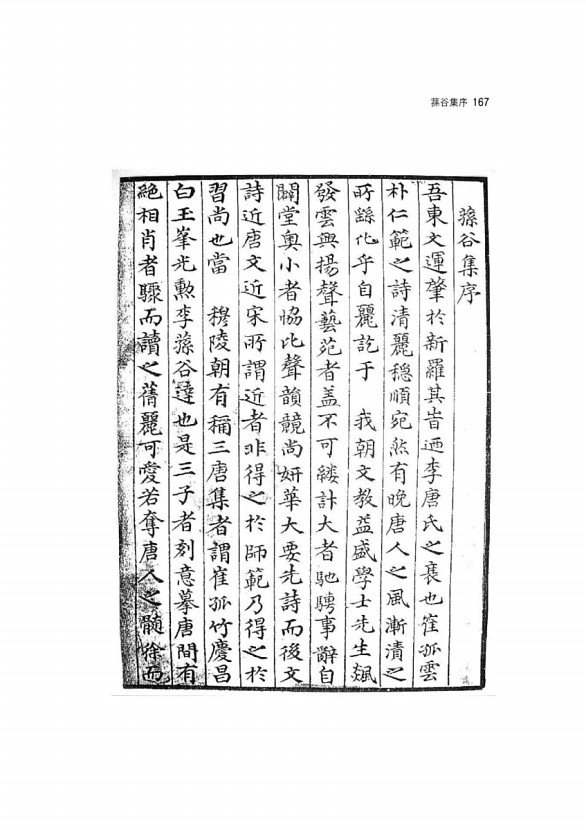 蓀谷集序 167
蓀谷集序
吾東文運肇於新羅其旹迺李唐氏之衰也崔孤雲
朴仁範之詩清麗穩順宛然有晚唐人之風漸漬之
所繇化乎自麗訖于 我朝文教益盛學士先生飈
發雲興揚聲藝苑者盖不可縷計大者馳騁事辭自
闢堂奧小者恊比聲韻競尚妍華大要先詩而後文
詩近唐文近宋所謂近者非得之於師範乃得之於
習尚也當 穆陵朝有稱三唐集者謂崔孤竹慶昌
白玉峯光勲李蓀谷達也是三子者刻意摹唐間有
絶相肖者驟而讀之蒨麗可愛若奪唐人之髓徐而